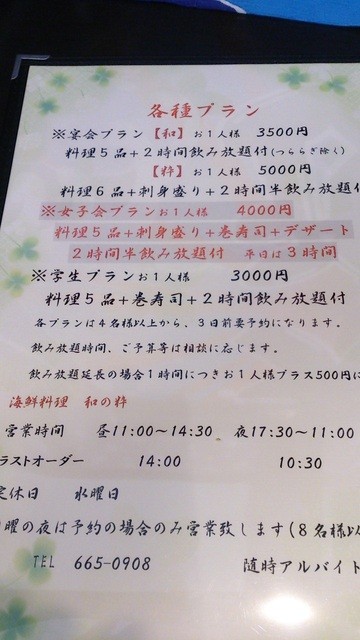 各種プラン
※宴会プラン【和】お1人様 3500円
料理5品+2時間飲み放題付(つららぎ除く)
【粋】お1人様 5000円
料理6品+刺身盛り+2時間半飲み放題付
※女子会プランお1人様 4000円
料理5品+刺身盛り+巻寿司+デザート
2時間半飲み放題付 平日は3時間
※学生プランお1人様 3000円
料理5品+巻寿司+2時間飲み放題付
各プランは4名様以上から、3日前要予約になります。
飲み放題時間、ご予算等は相談に応じます。
飲み放題延長の場合1時間につきお1人様プラス500円に
海鮮料理 和の粋
営業時間 昼11:00～14:30 夜17:30～11:00
ラストオーダー 14:00 10:30
定休日 水曜日
曜の夜は予約の場合のみ営業致します(8名様以
TEL 665-0908 随時アルバイト